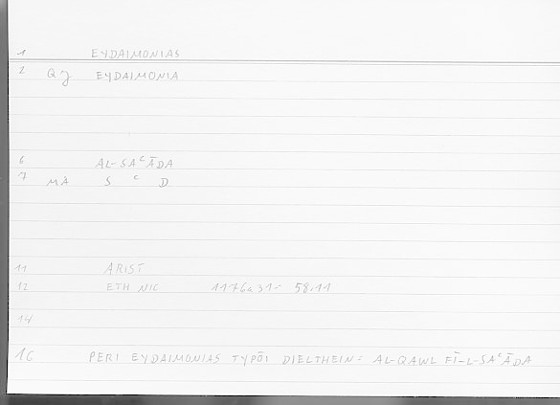 1 EYDAIMONIAS
2 Q EYDAIMONIA
6 AL-SAʿĀDA
7 MA S ʿ D
11 ARIST
12 ETH NIC 1176a31 58.11
14
16 PERI EYDAIMONIAS TYPŌI DIELTHEIN: AL-QAWL FĪ-L-SAʿĀDA